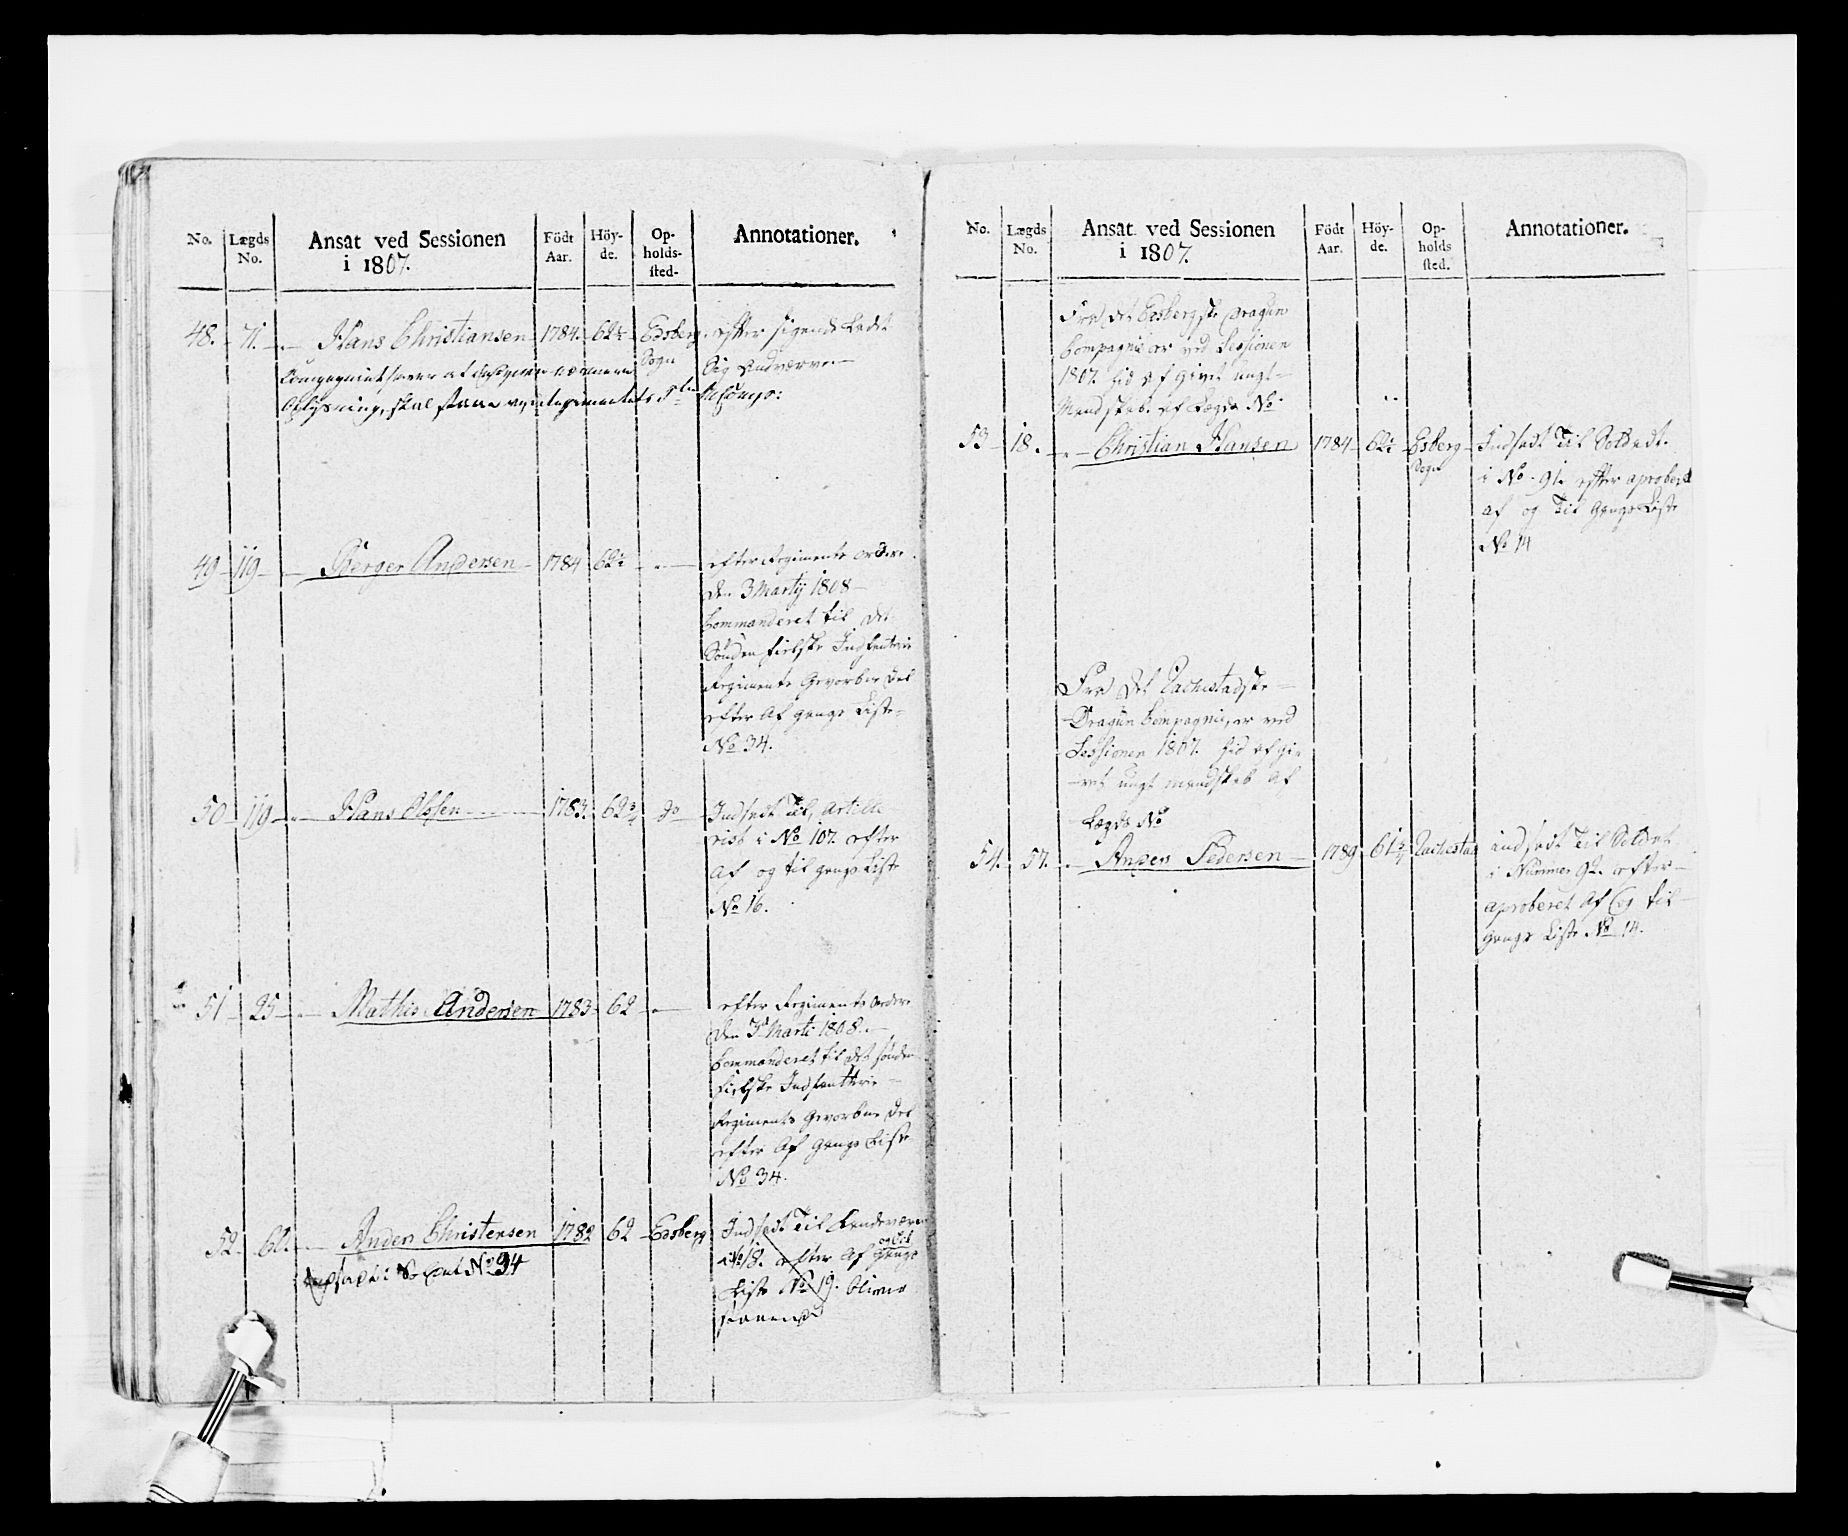 No. Lægds No. Ansat ved Sessionen i 1807. Födt Aar. Höy-de. Op-holds-sted. Annotationer.
48. 71. Hans Christiansen 1784. 62½ Edsberg Sogn efter sigende Ladet
Sig Andværve
skal staae ved Regimentets
49 119 Berger Andersen 1784 62½ efter Regiments ordre
den 3 Martÿ 1808
Commanderet til det
Sönden fieldske Indfanterie
Regiments Gevorbne Del
efter Af gangs Liste
No 34.
50 119 Hans Olssen 1783. 62¾ do Indsadt Til Artille
rist i No 107. efter
Af og til gangs Liste
No 16.
51 25 Mathis Andersen 1783 62 efter Regiments Ordre
Den 3d Marti 1808.
Commanderet til det sönden
fieldske Indfantterie
Regiments Gevorbne Del
efter Af gangs Liste
No 34.
52. 60. Anders Christensen 1782 62 Edsberg Indsadt Til Landeværn
i No 18. efter Af og til gangs
Liste No 19. bliver
staaende
No 94
No. Lægds No. Ansat ved Sessionen i 1807. Födt Aar. Höy-de. Op-holds sted. Annotationer.
Fra det Edsbergske Dragun
Compagnie er ved Sessionen
1807. hid af givet ungt
Mandskab. af Lægds No
53 18. Christian Hansen 1784 62½ Esberg Sogn Indsadt Til Soldadt.
i No. 91. efter aproberet
af og Til gangs Liste
No 14
Fra Det Rachestadske
Dragun Compagnie, er ved
Sessionen 1807. hid af gi
vet ungt mandskab Af
Lægds No
54. 57. Anders Pedersen 1789 61¾ Rachestad indsadt Til Soldat
i Nummer 92. efter
aproberet Af og til
gangs Liste No 14.